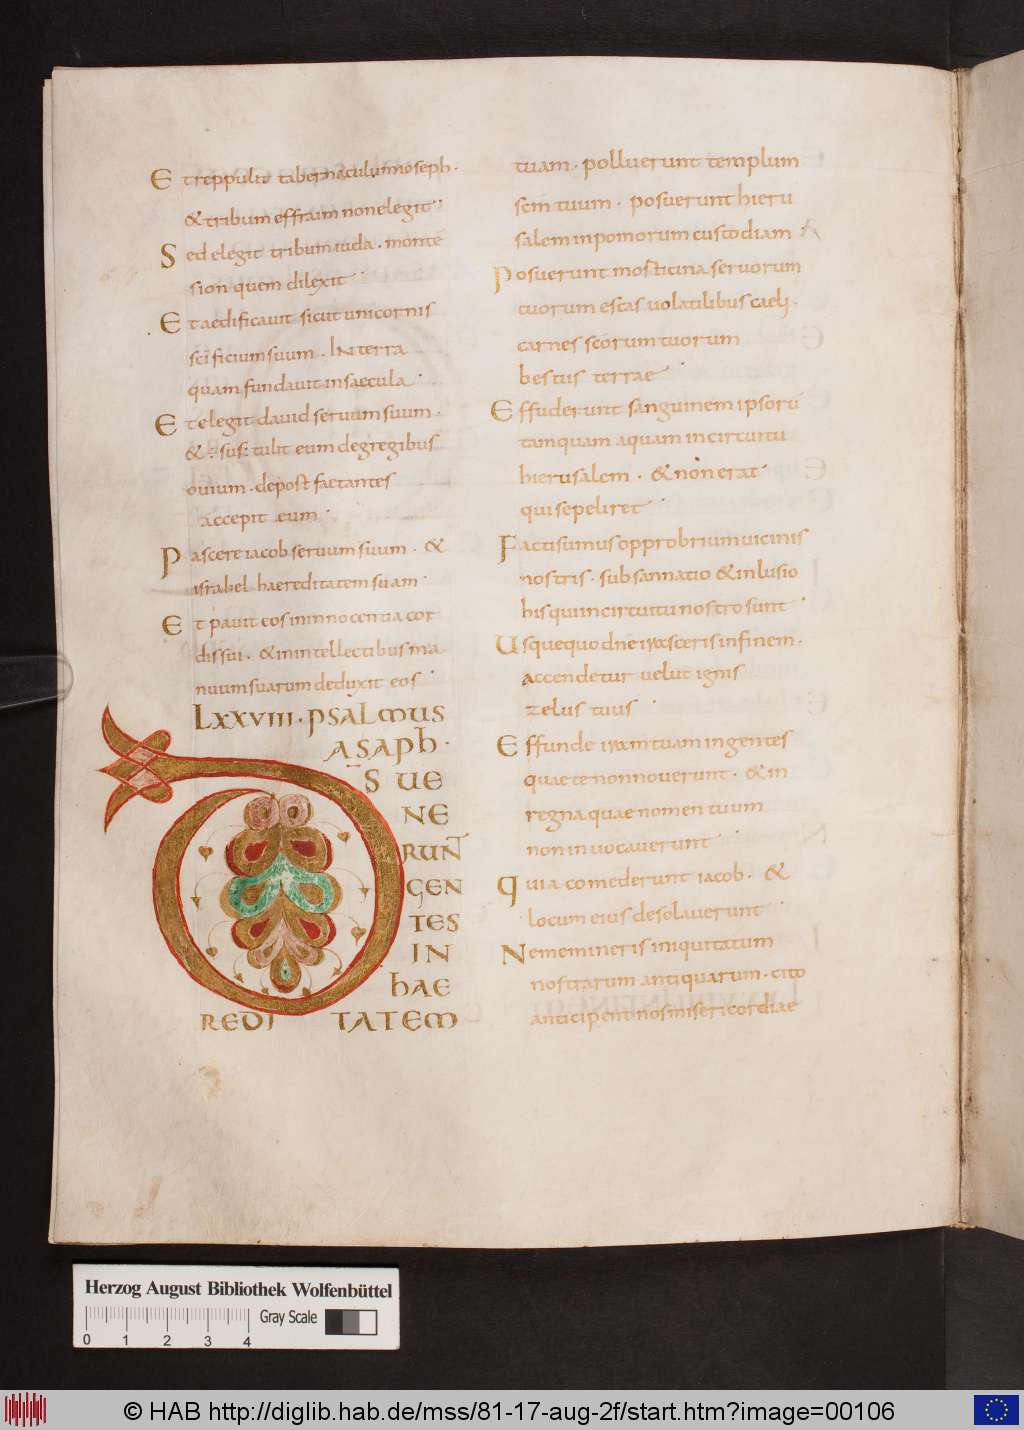 Et reppulit tabernaculum ioseph·
& tribum effraim non elegit
Sed elegit tribum iuda· monte
sion quem dilexit
Et aedificauit sicut unicornis
sc̄ificium suum· IN terra
quam fundauit in saecula
Et elegit dauid seruum suum·
& sus tulit eum de gregibus
ouium· de post faetantes
accepit eum
Pascere iacob seruum suum· &
israhel haereditatem suam
Et pauit eos in innocentia cor
dis sui· & in intellectibus ma
nuum suarum deduxit eos
LXXVIII· PSALMUS
ASAPH·
D̄S UE
NE
RUN̄
GEN
TES
IN
HAE
REDI TATEM
tuam· polluerunt templum
scm̄ tuum· posuerunt hieru
salem in pomorum custodiam
Posuerunt mosticina seruorum
tuorum escas uolatilibus caeli·
carnes sc̄orum tuorum
bestiis terrae
Effuderunt sanguinem ipsorū
tamquam aquam in circuitu
hierusalem· & non erat
qui sepeliret
Facti sumus opprobrium uicinis
nostris· subsannatio & inlusio
his qui in circuitu nostro sunt
Usquequo dn̄e irasceris in finem·
accendetur uelut ignis
zelus tuus
Effunde iram tuam in gentes
quae te non nouerunt· & in
regna quae nomen tuum
non inuocauerunt
Quia comederunt iacob· &
locum eius desolauerunt
Ne memineris iniquitatum
nostrarum antiquarum· cito
anticipent nos misericordiae
Herzog August Bibliothek Wolfenbüttel
Gray Scale
0 1 2 3 4
© HAB http://diglib.hab.de/mss/81-17-aug-2f/start.htm?image=00106